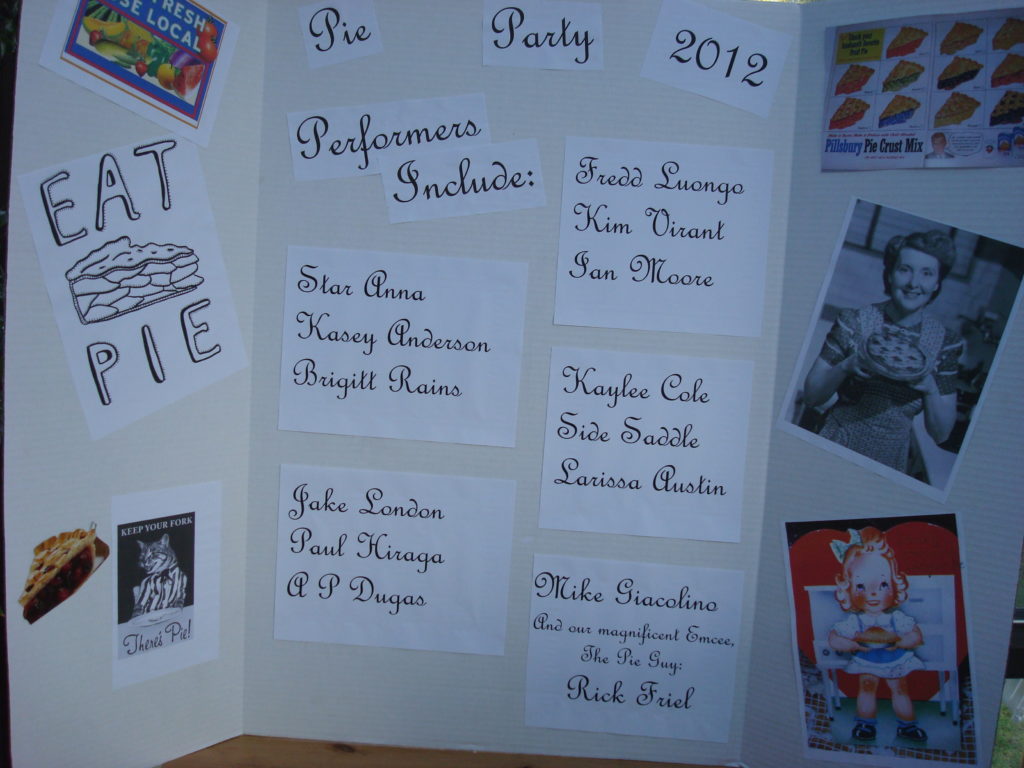 FRESH
USE LOCAL
EAT
PIE
KEEP YOUR FORK
There's Pie!
Pie Party 2012
Performers
Include:
Star Anna
Kasey Anderson
Brigitt Rains
Jake London
Paul Hiraga
A P Dugas
Fredd Luongo
Kim Virant
Ian Moore
Kaylee Cole
Side Saddle
Larissa Austin
Mike Giacolino
And our magnificent Emcee,
The Pie Guy:
Rick Friel
Pillsbury Pie Crust Mix